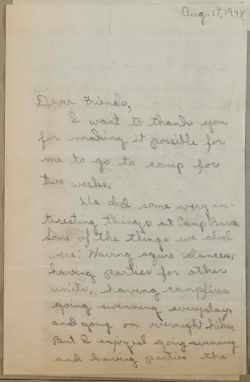 Aug. 17, 1948
Dear Friends,
I want to thank you
for making it possible for
me to go to camp for
two weeks.
We did some very in-
teresting things at Camp
Some of the things we did
were: Having squre dances,
having parties for other
units, having campfires
going swimming everyday,
and going on overnight hikes,
But I enjoyed going swimming
and having parties the